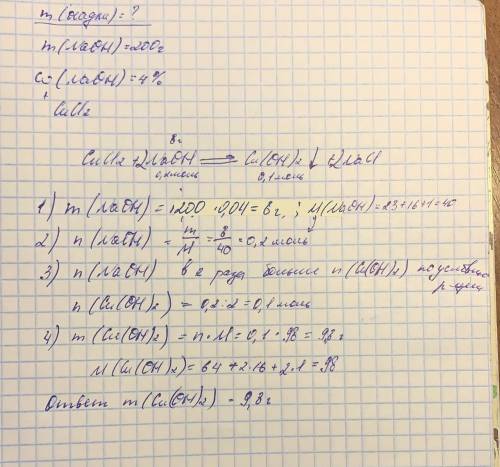 m(осадка)=?
m(NaOH)=200г
ω(NaOH)=4%
+
CuCl2
8г
CuCl2+2NaOH = Cu(OH)2↓+2NaCl
0,2моль 0,1моль
1) m(NaOH)=200·0,04=8г, ; M(NaOH)=23+16+1=40
2) n(NaOH)=m/M=8/40=0,2моль
3) n(NaOH) в 2 раза больше n(Cu(OH)2) по условию
р-ции
n(Cu(OH)2)=0,2:2=0,1моль
4) m(Cu(OH)2)=n·M=0,1·98=9,8г
M(Cu(OH)2)=64+2·16+2·1=98
Ответ m(Cu(OH)2)-9,8г